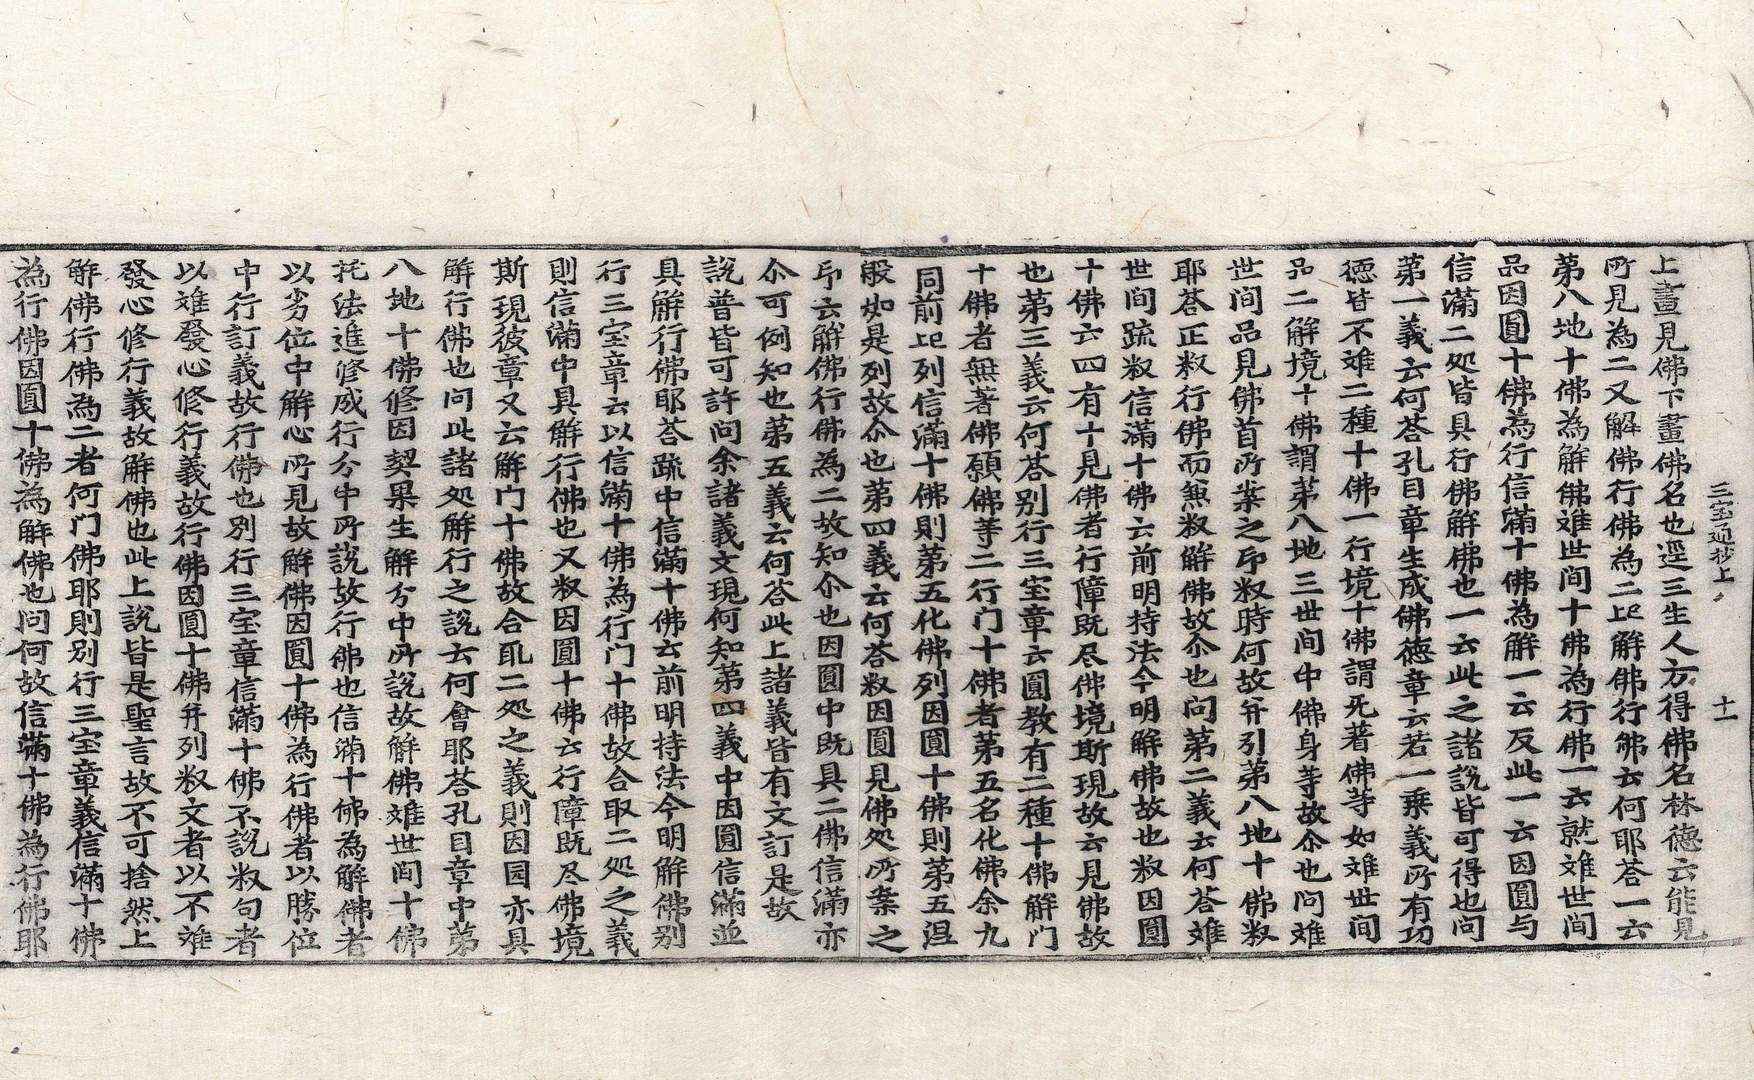 三宝通抄上　十一
上畫見佛下畫佛名也逕三生人方得佛名林德云能見
所見為二又解佛行佛為二此解佛行佛云何耶荅一云
第八地十佛為解佛离世间十佛為行佛一云就难世间
品因圓十佛為行信滿十佛為解一云反此一云因圓与
信滿二処皆具行佛解佛也一云此之諸說皆可得也问
第一義云何荅孔目章生成佛德章云若一乗義所有功
德皆不难二種十佛一行境十佛謂死著佛等如难世间
品二解境十佛謂第八地三世间中佛身等故尒也问难
世间品見佛首所䅁之卬叙時何故并引第八地十佛叙
耶荅正叙行佛而兼叙解佛故尒也问第二義云何荅难
世间疏叙信滿十佛云前明持法今明解佛故也叙因圓
十佛云四有十見佛者行障既尽佛境斯現故云見佛故
也第三義云何荅别行三宝章云圓教有二種十佛解门
十佛者無著佛願佛等二行门十佛者第五名化佛余九
同前此列信滿十佛則第五化佛列因圓十佛則第五涅
般如是列故尒也第四義云何荅叙因圓見佛処所䅁之
卬云解佛行佛為二故知尒也因圓中既具二佛信滿亦
尒可例知也第五義云何荅此上諸義皆有文訂是故
說普皆可許问余諸義文現何知第四義中因圓信滿並
具解行佛耶荅疏中信滿十佛云前明持法今明解佛别
行三宝章云以信滿十佛為行门十佛故合取二処之義
則信滿中具解行佛也又叙因圓十佛云行障既尽佛境
斯現彼章又云解门十佛故合取二処之義則因圓亦具
解行佛也问此諸処解行之說云何會耶荅孔目章中第
八地十佛修因契果生解分中所說故解佛难世间十佛
托法進修成行分中所說故行佛也信滿十佛為解佛者
以劣位中解心所見故解佛因圓十佛為行佛者以勝位
中行訂義故行佛也别行三宝章信滿十佛不說叙句者
以难發心修行義故行佛因圓十佛并列叙文者以不难
發心修行義故解佛也此上說皆是聖言故不可捨然上
解佛行佛為二者何门佛耶則别行三宝章義信滿十佛
為行佛因圓十佛為解佛也问何故信滿十佛為行佛耶